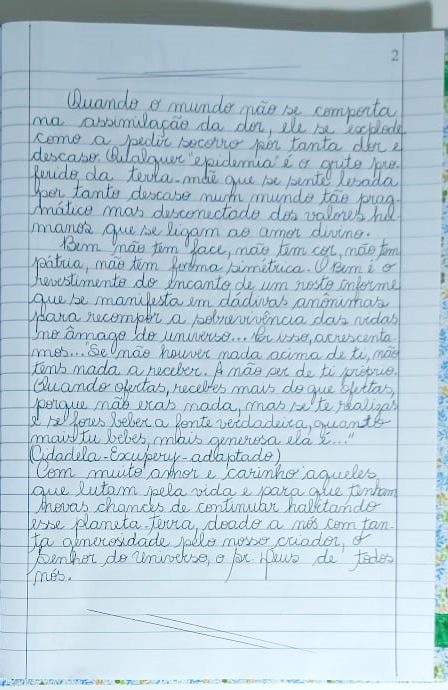 2
Quando o mundo não se comporta
na assimilação da dor, ele se explode
como a pedir socorro por tanta dor e
descaso. Qualquer "epidemia" é o grito pro-
ferido da terra-mãe que se sente lesada
por tanto descaso num mundo tão prag-
mático mas desconectado dos valores hu-
manos que se ligam ao amor divino.
Bem não tem face, não tem cor, não tem
pátria, não tem forma simétrica. O Bem é o
revestimento do encanto de um rosto informe
que se manifesta em dádivas anônimas
para recompor a sobrevivência das vidas
no âmago do universo... Por isso, acrescenta-
mos... "Se não houver nada acima de ti, não
tens nada a receber. A não ser de ti próprio.
Quando ofertas, recebes mais do que ofertas,
porque não eras nada, mas se te realizas
e se fores beber a fonte verdadeira, quanto
mais tu bebes, mais generosa ela é..."
(Cidadela-Exupery-adaptado)
Com muito amor e carinho aqueles
que lutam pela vida e para que tenham
novas chances de continuar habitando
esse planeta-terra, doado a nós com tan-
ta generosidade pelo nosso criador, o
Senhor do Universo, o Sr Deus de todos
nós.